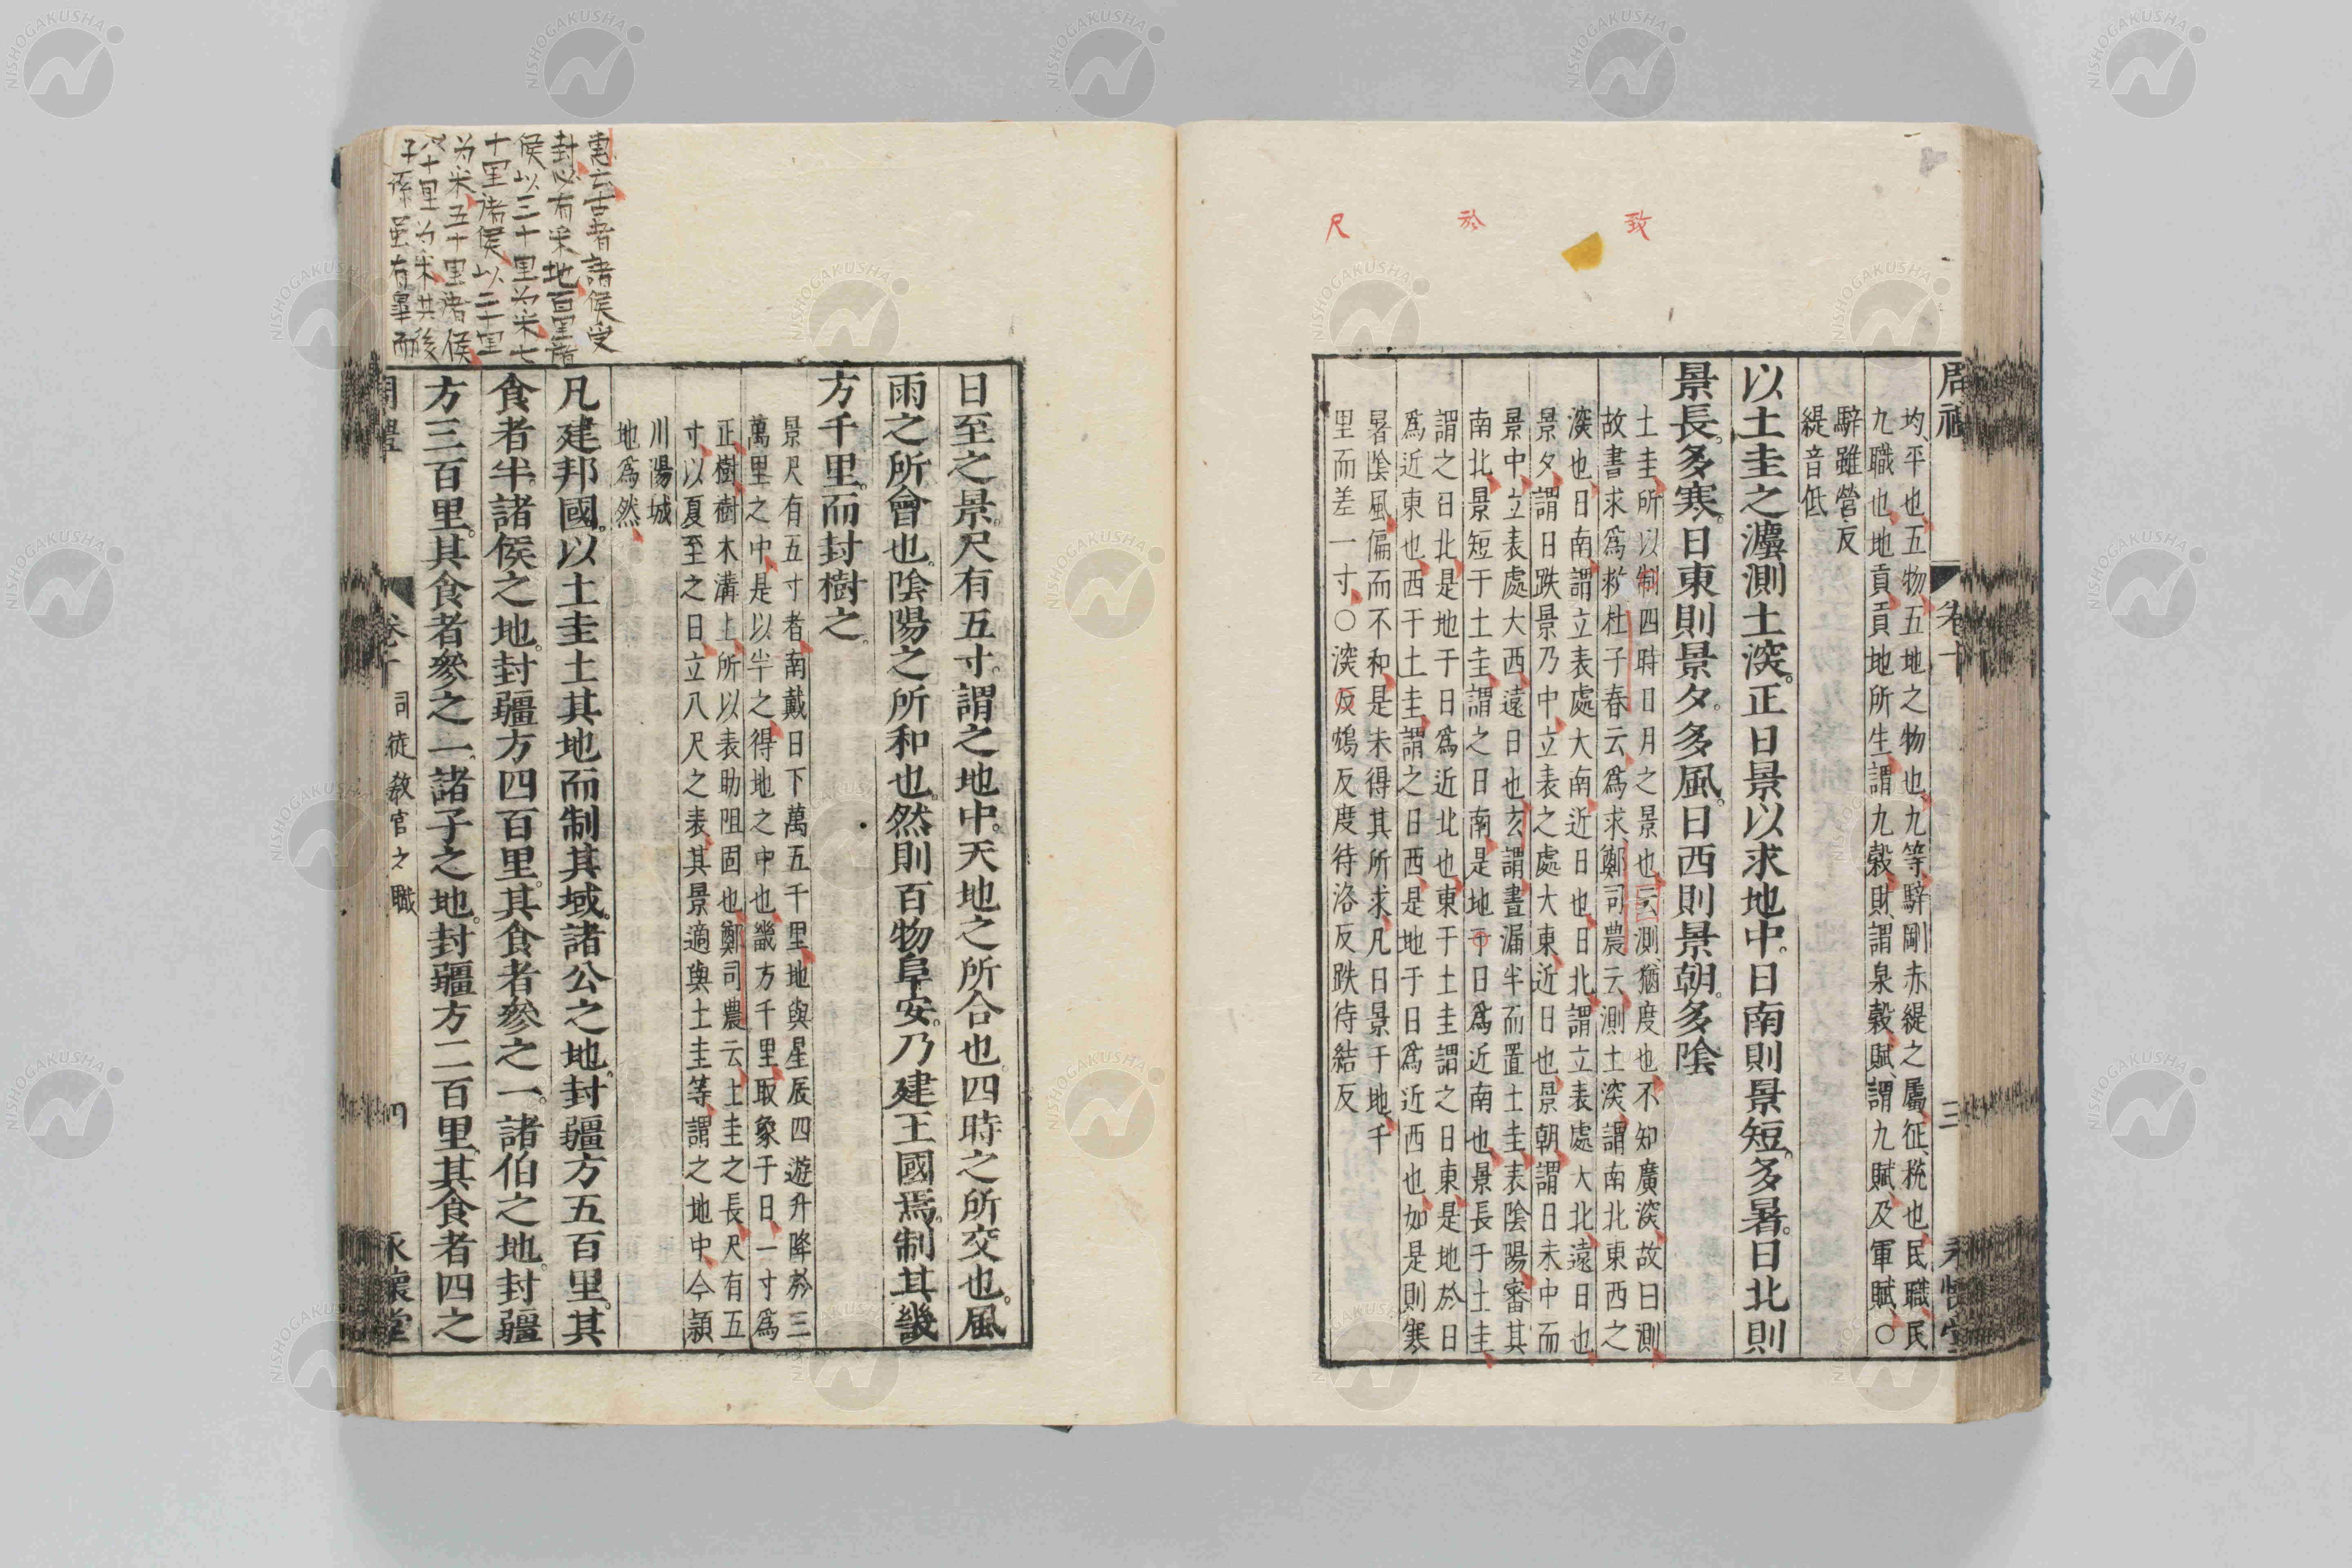 致
於
尺
周禮
卷十
三
永懷堂
均平也五物五地之物也九等騂剛赤緹之屬征稅也民職民
九職也地貢貢地所生謂九穀財謂泉穀賦謂九賦及軍賦○
騂雖營反
緹音低
以土圭之灋測土深。正日景以求地中。日南則景短。多暑。日北則
景長。多寒。日東則景夕。多風。日西則景朝。多陰
土圭所以制四時日月之景也云測猶度也不知廣深故曰測
故書求爲救杜子春云爲求鄭司農云測土深謂南北東西之
深也日南謂立表處大南近日也日北謂立表處大北遠日也
景夕謂日跌景乃中立表之處大東近日也景朝謂日未中而
景中立表處大西遠日也玄謂晝漏半而置土圭表陰陽審其
南北景短于土圭謂之日南是地于日爲近南也景長于土圭
謂之日北是地于日爲近北也東于土圭謂之日東是地於日
爲近東也西于土圭謂之日西是地于日爲近西也如是則寒
暑陰風偏而不和是未得其所求凡日景于地千
里而差一寸○深反鴆反度待洛反跌待結反
日至之景。尺有五寸。謂之地中。天地之所合也。四時之所交也。風
雨之所會也。陰陽之所和也。然則百物阜安。乃建王國焉。制其畿
方千里。而封樹之。
景尺有五寸者南戴日下萬五千里地與星辰四遊升降於三
萬里之中是以半之得地之中也畿方千里取象于日一寸爲
正樹樹木溝上所以表助阻固也鄭司農云土圭之長尺有五
寸以夏至之日立八尺之表其景適與土圭等謂之地中今潁
川陽城
地爲然
凡建邦國。以土圭土其地而制其域。諸公之地。封疆方五百里。其
食者半。諸侯之地。封疆方四百里。其食者參之一。諸伯之地。封疆
方三百里。其食者參之一。諸子之地。封疆方二百里。其食者四之
周禮
卷十
司徒敎官之職
四
永懷堂
云古者諸侯受
封必有采地百里諸
侯以三十里为采七
十里諸侯以二十里
为采五十里諸侯
以十里为采其後
子孫虽有辠而